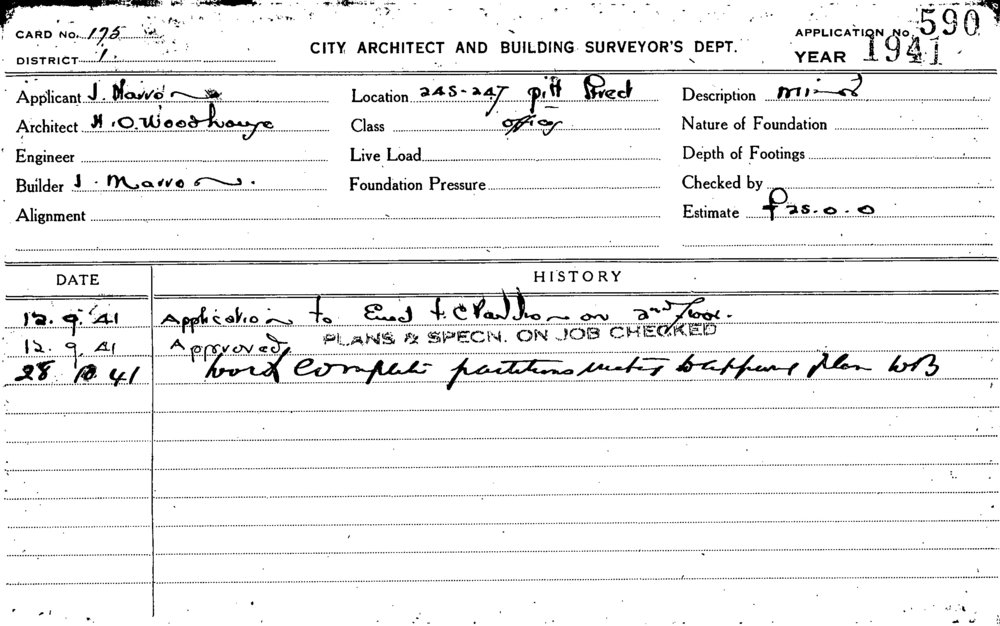 CARD No. 175
DISTRICT 1.
CITY ARCHITECT AND BUILDING SURVEYOR'S DEPT.
APPLICATION No. 590
YEAR 1941
Applicant J. Marron
Location 245-247 pitt Street
Description minor
Architect H.O. Woodhouse
Class offices
Nature of Foundation
Engineer
Live Load
Depth of Footings
Builder J. Marron.
Foundation Pressure
Checked by
Alignment
Estimate £25.0.0
DATE
HISTORY
12.9.41 Application to Erect on 2nd floor.
12.9.41 Approved PLANS & SPECN. ON JOB CHECKED
28 10 41 Work Complete partitions plan WB